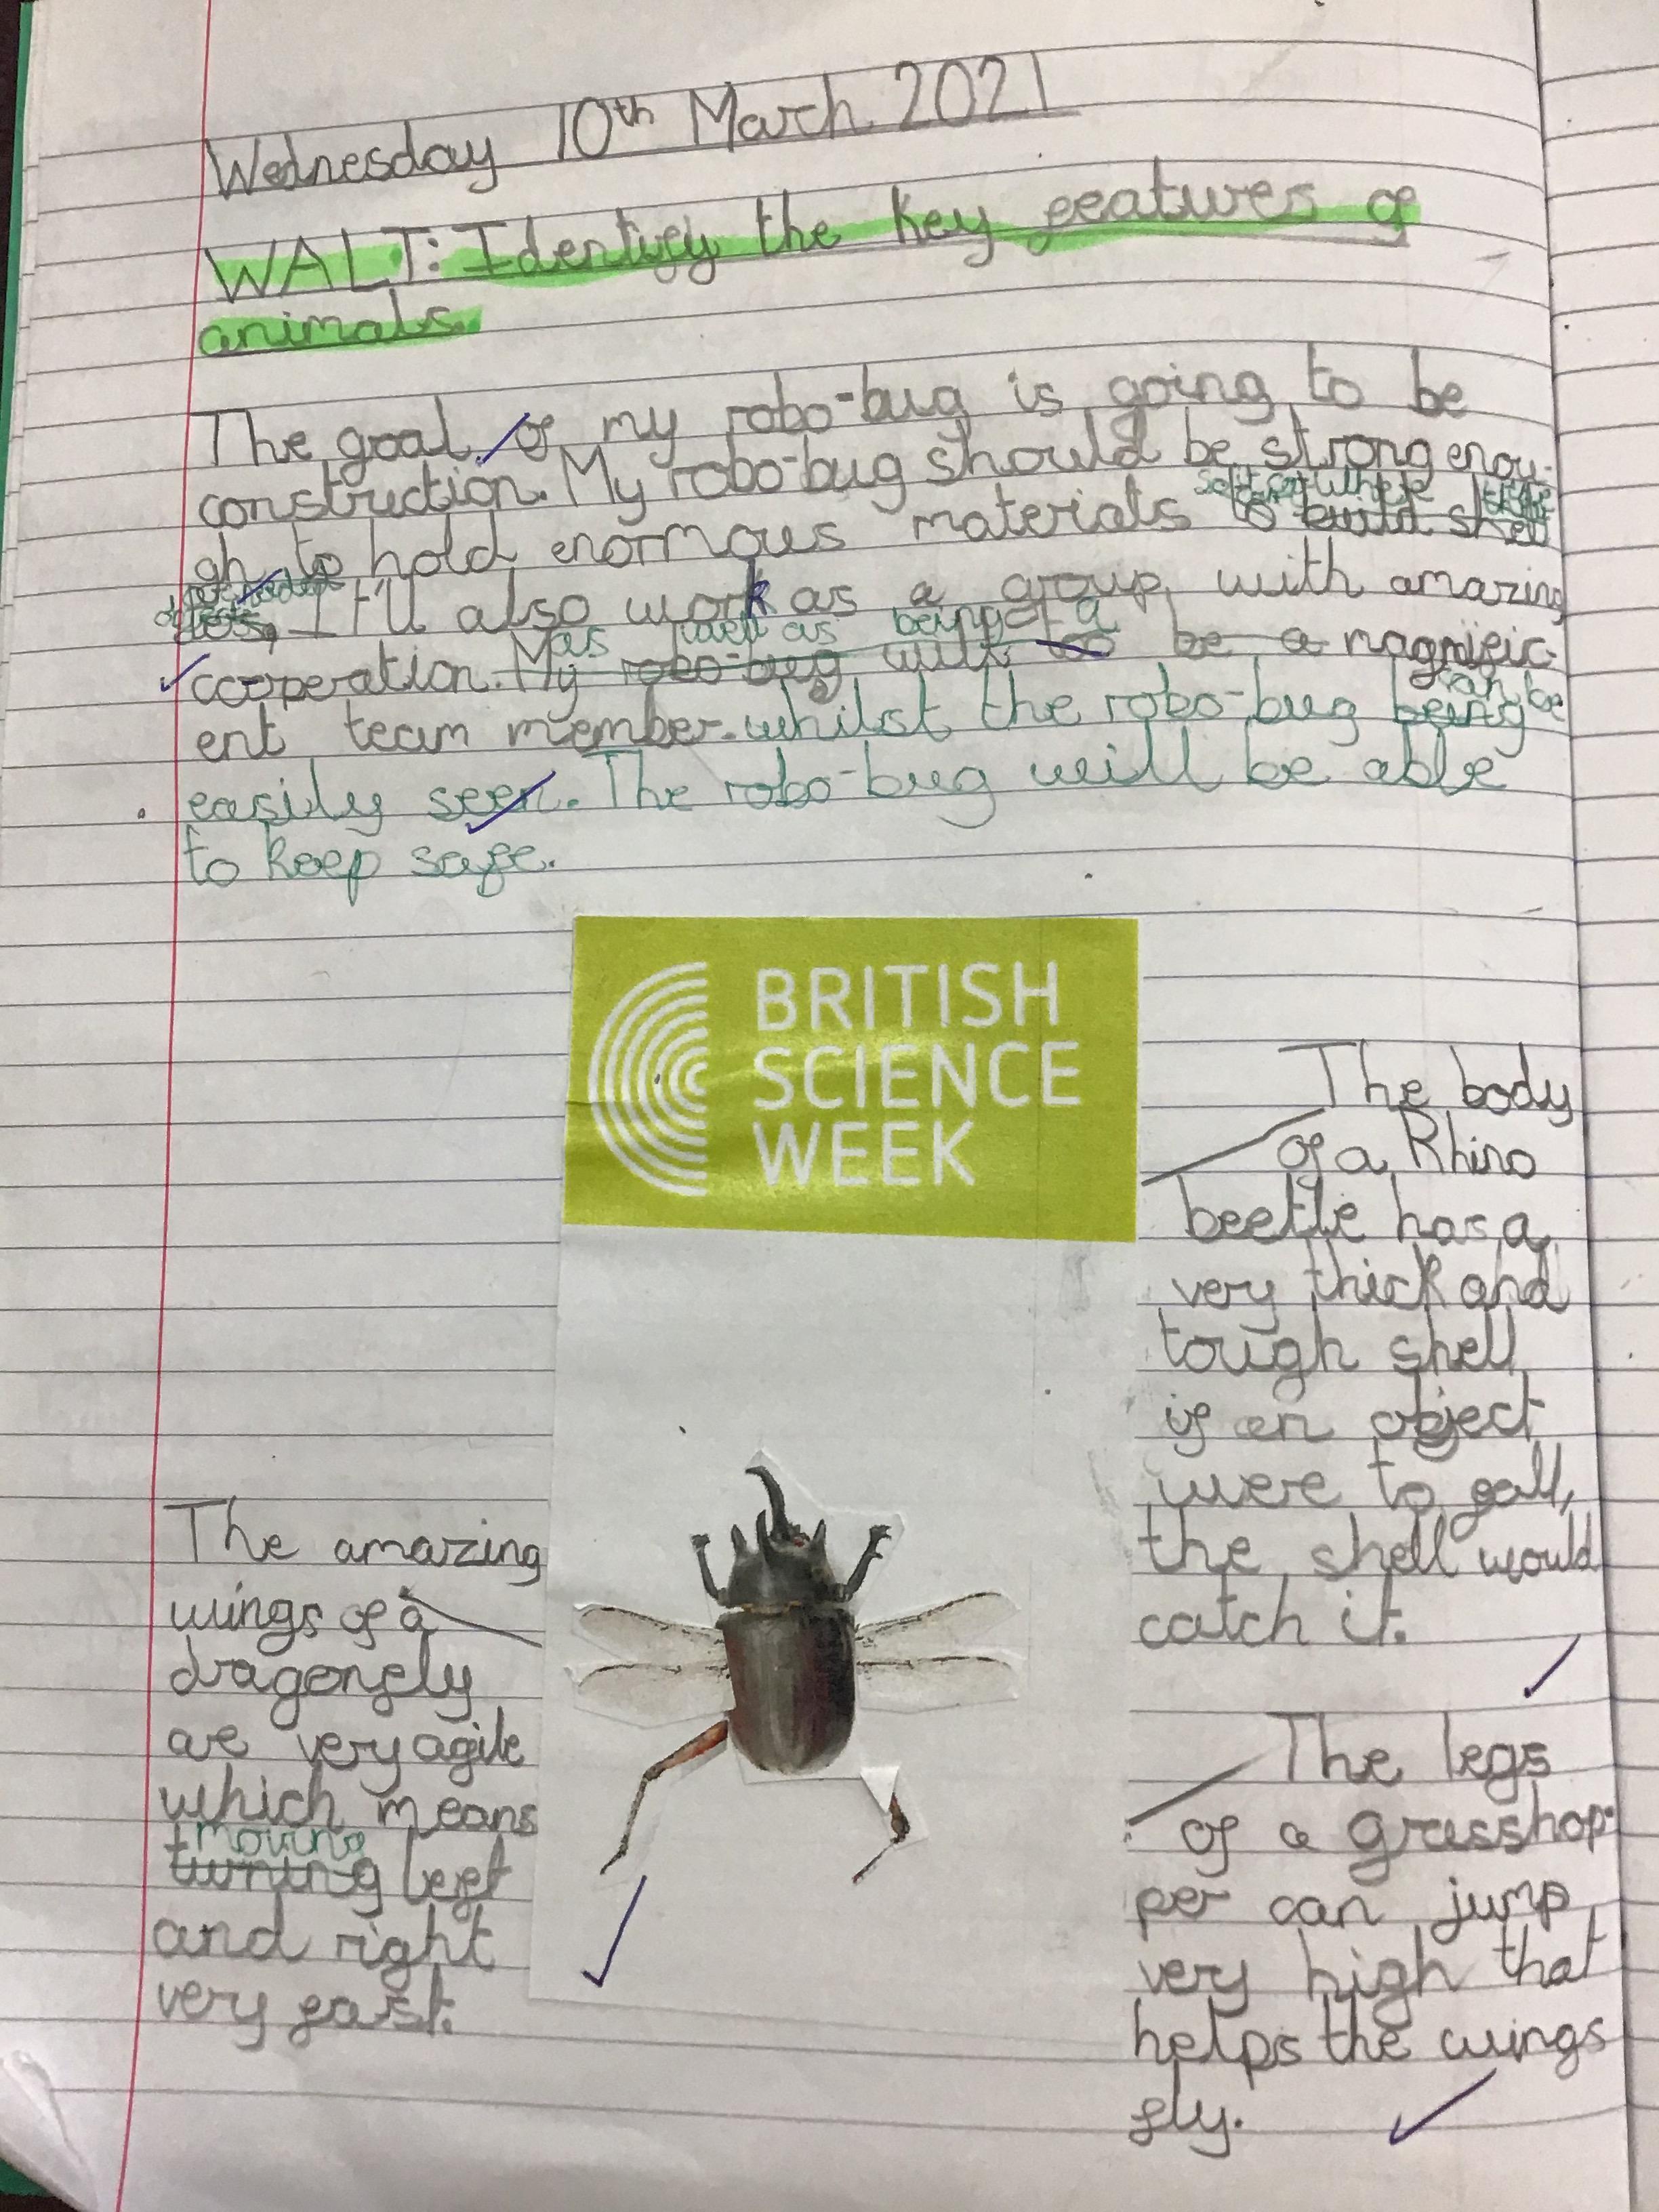 Wednesday 10th March 2021
WALT: Identify the key features of
animals.
The goal of my robo-bug is going to be
construction. My robo-bug should be strong enou-
gh to hold enormous materials to build shell
I t'll also work as a group, with amazing
as well as being a
cooperation. My robo-bug will be a magnific-
ent team member. whilst the robo-bug being can be
easily seen. The robo-bug will be able
to keep safe.
BRITISH
SCIENCE
WEEK
The body
of a Rhino
beetle has a
very thick and
tough shell
if an object
were to fall,
the shell would
catch it.
The amazing
wings of a
dragonfly
are very agile
which means
moving
turning left
and right
very fast.
The legs
of a grasshop-
per can jump
very high that
helps the wings
fly.